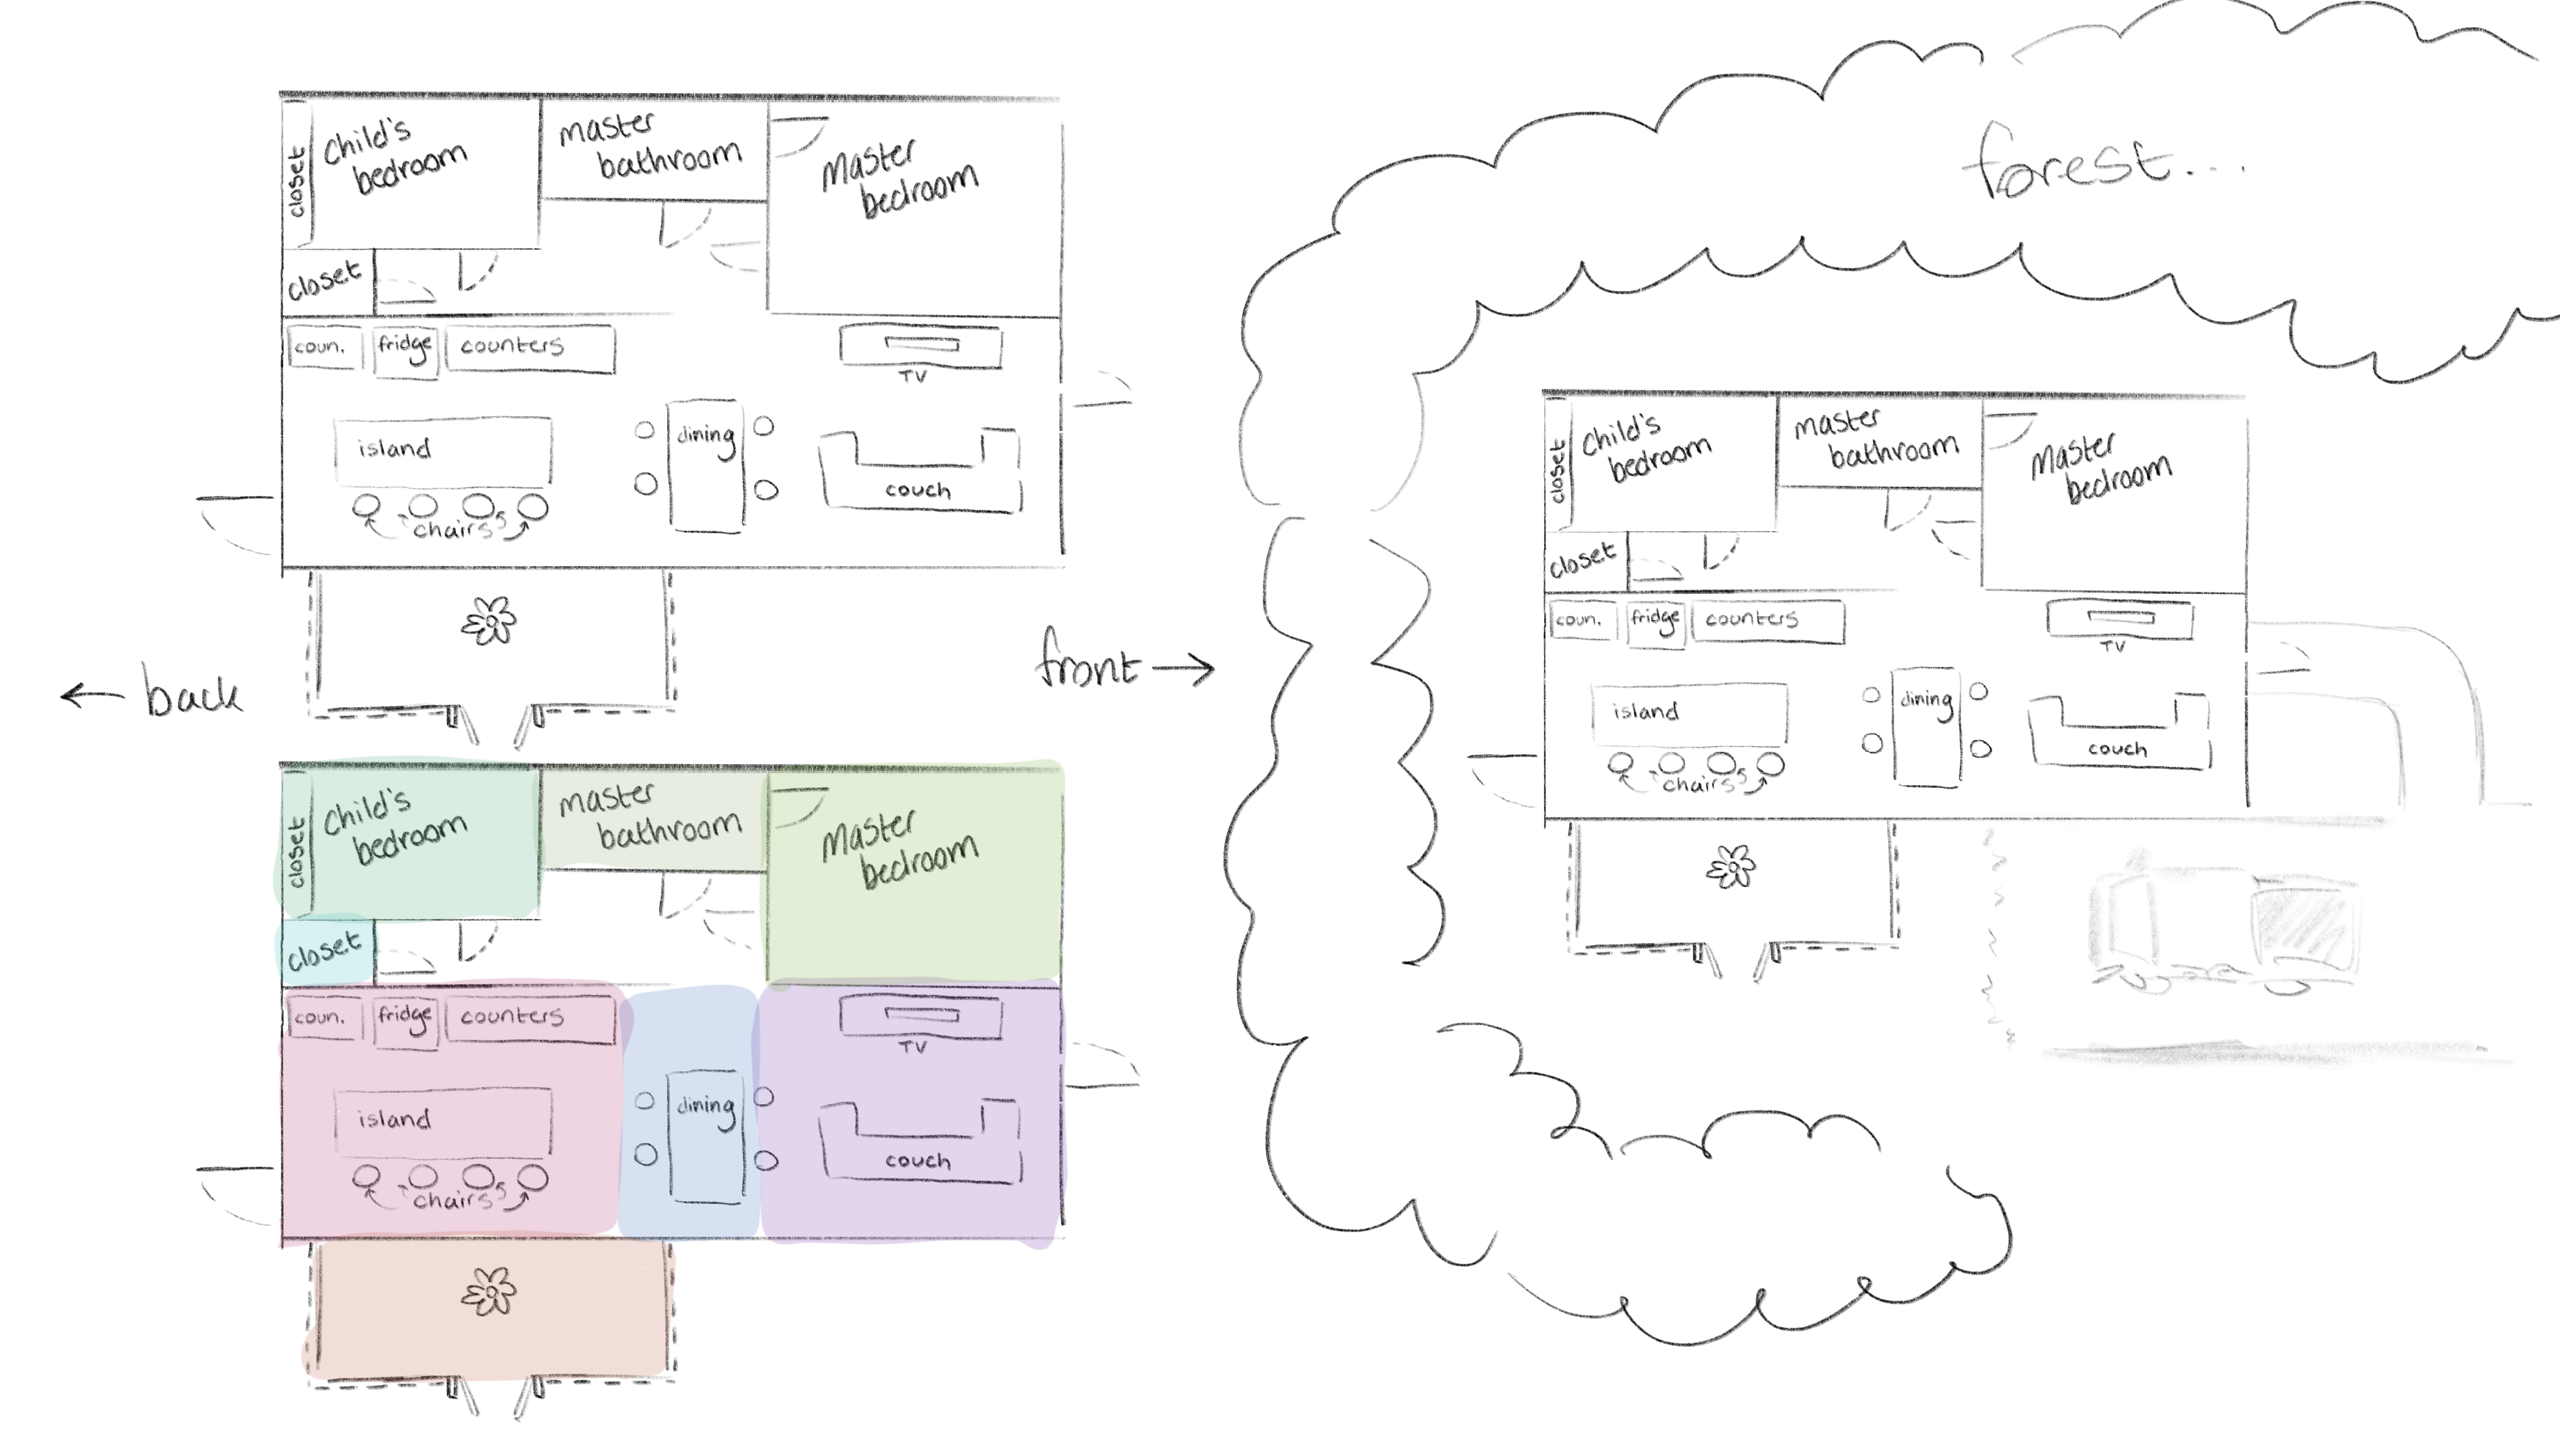 closet
Child's
bedroom
master
bathroom
Master
bedroom
closet
coun.
fridge
counters
TV
island
dining
couch
chairs
← back
front →
closet
Child's
bedroom
master
bathroom
Master
bedroom
closet
coun.
fridge
counters
TV
island
dining
couch
chairs
forest...
closet
Child's
bedroom
master
bathroom
Master
bedroom
closet
coun.
fridge
counters
TV
island
dining
couch
chairs